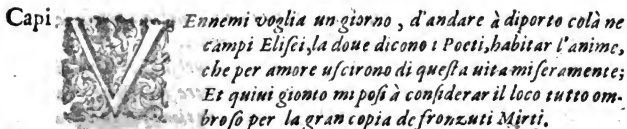 Capi. VEnnemi voglia un giorno, d'andare à diporto colà ne
campi Elisci, la doue dicono i Poeti, habitar l'anime,
che per amore uſcirono di queſta uita miſeramente;
Et quiui gionto mi poſi à conſiderar il loco tutto om-
broſo per la gran copia de fronzuti Mirti.